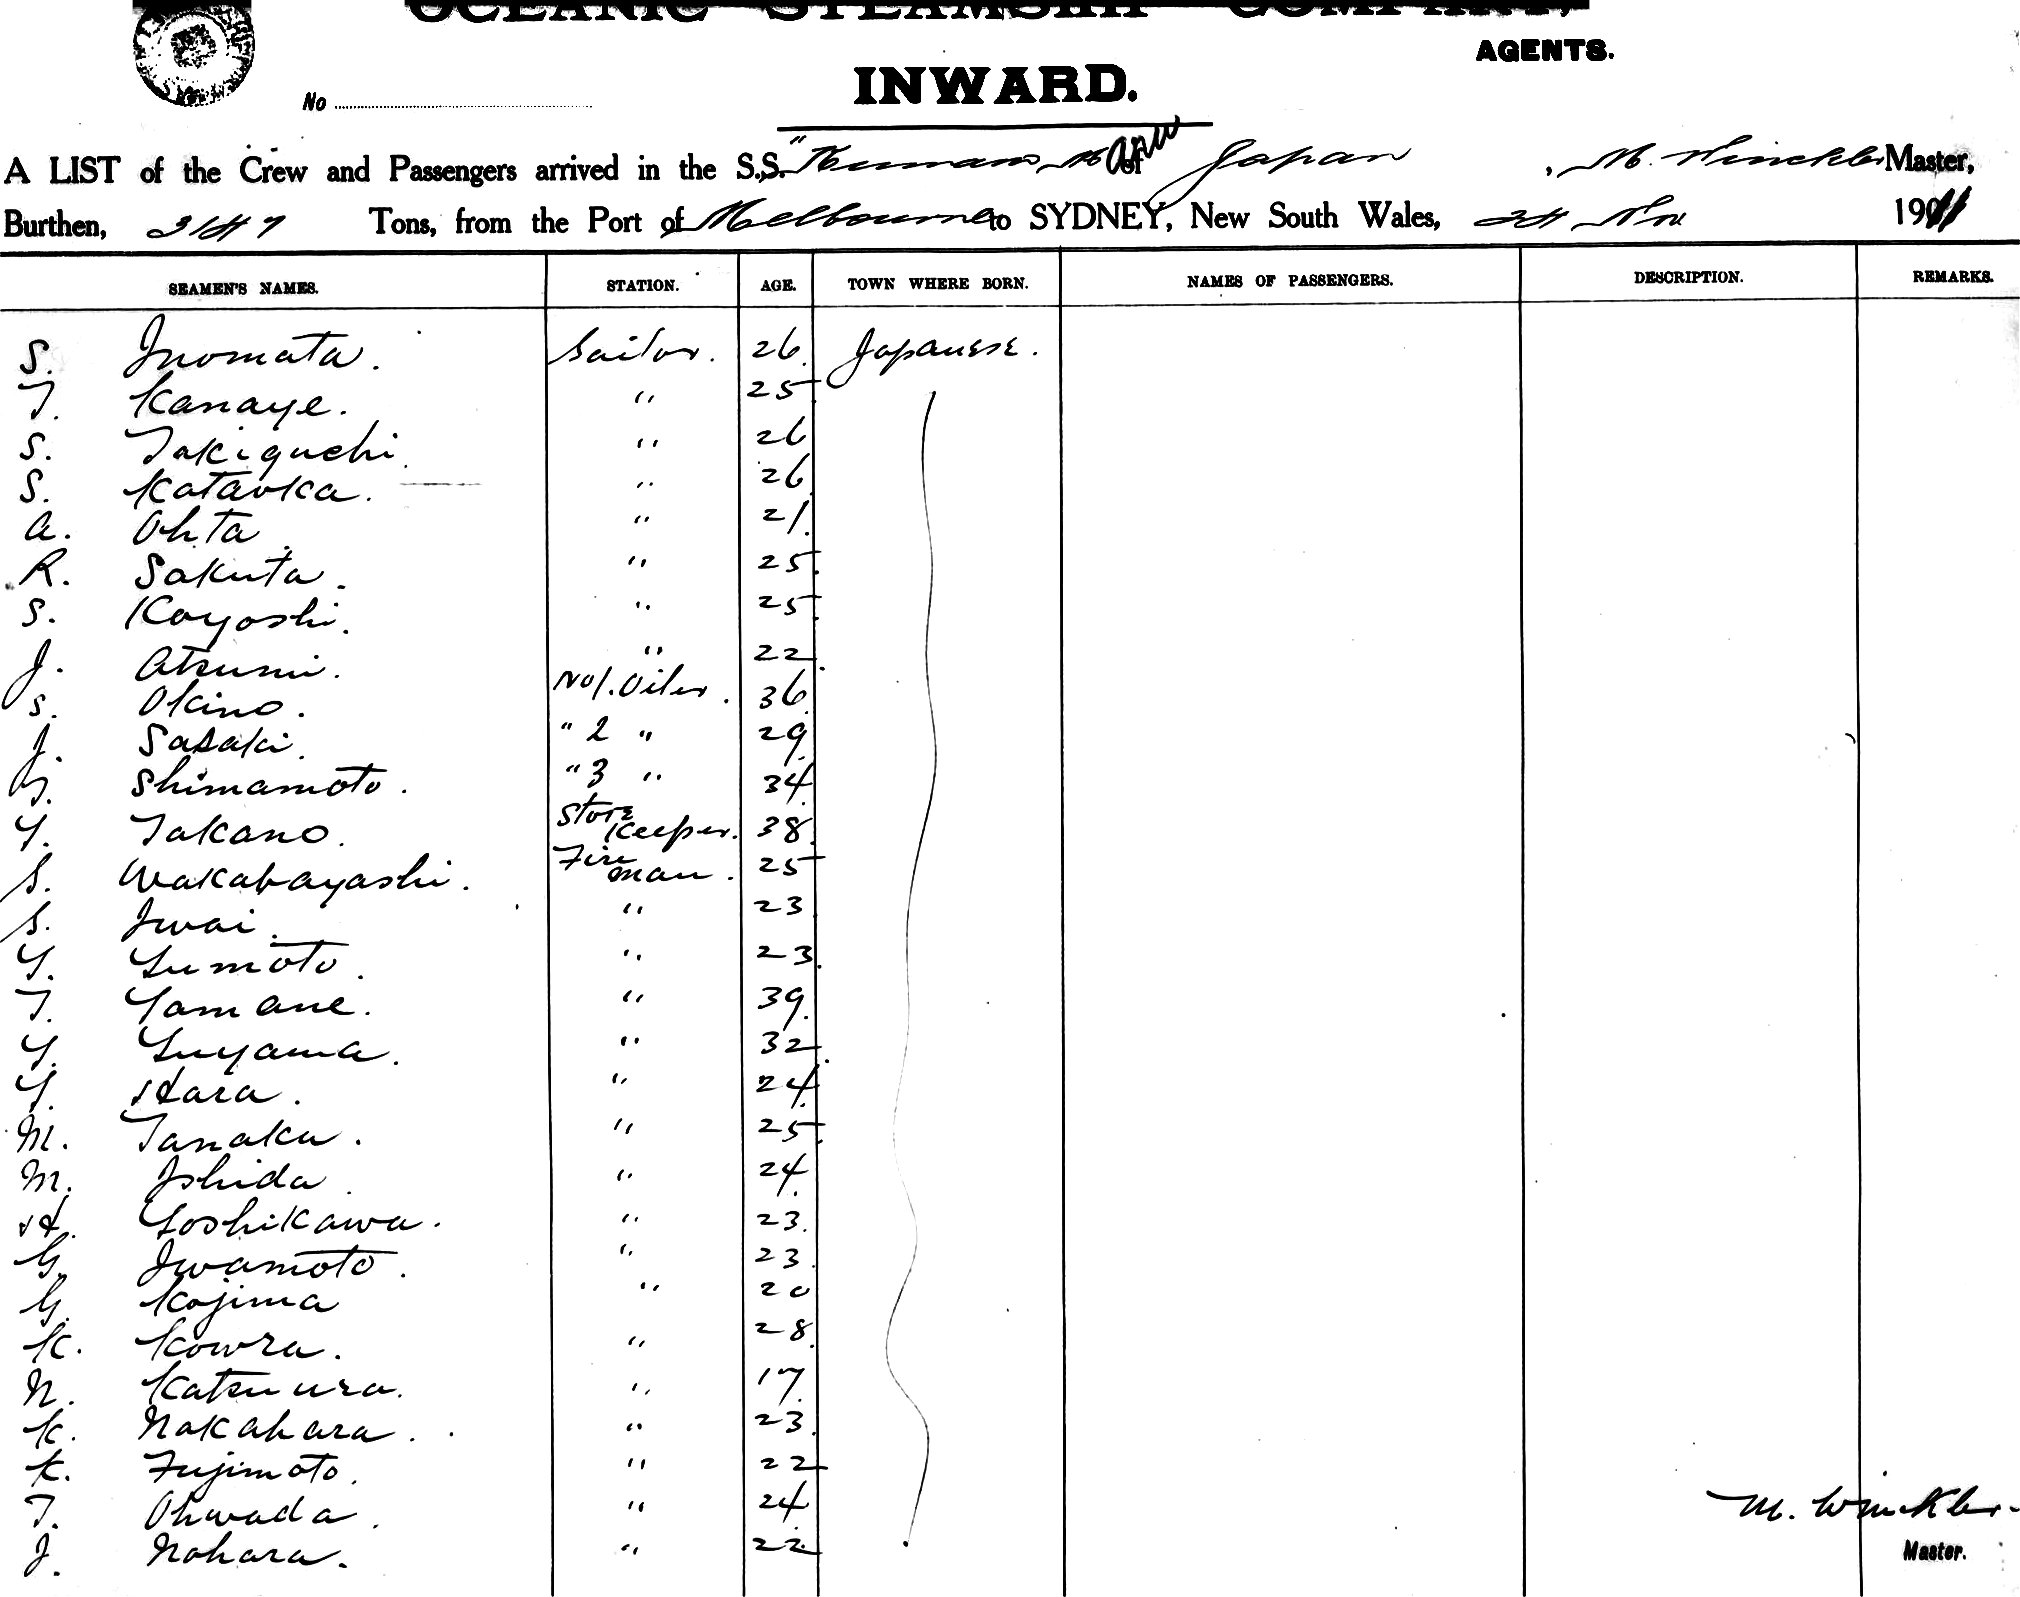 OCEANIC STEAMSHIP COMPANY,
AGENTS.
INWARD.
No
A LIST of the Crew and Passengers arrived in the S.S. "Kumano Maru of Japan, M. Winckler Master,
Burthen, 3147 Tons, from the Port of Melbourne to SYDNEY, New South Wales, 24 Nov 1911
SEAMEN'S NAMES. STATION. AGE. TOWN WHERE BORN. NAMES OF PASSENGERS. DESCRIPTION. REMARKS.
S. Inomata. Sailor. 26. Japanese.
T. Kanaye. " 25.
S. Takiguchi. " 26
S. Kataoka. " 26.
A. Ohta. " 21.
R. Sakuta. " 25.
S. Koyoshi. " 25.
J. Atsumi. " 22.
S. Okino. No 1. Oiler. 36.
J. Sasaki. " 2 " 29.
J. Shimamoto. " 3 " 34.
Y. Takano. Store Keeper. 38.
S. Wakabayashi. Fire man. 25
S. Iwai. " 23
Y. Yumoto. " 23.
T. Yamane. " 39.
Y. Suyama. " 32.
Y. Hara. " 24.
M. Tanaka. " 25.
M. Ishida. " 24.
H. Yoshikawa. " 23.
G. Iwamoto. " 23.
G. Kojima " 20
K. Kowra. " 28.
N. Katsuura. " 17.
K. Nakahara. " 23.
K. Fujimoto. " 22
T. Ohwada. " 24.
J. Nohara. " 22
M. Winckler
Master.